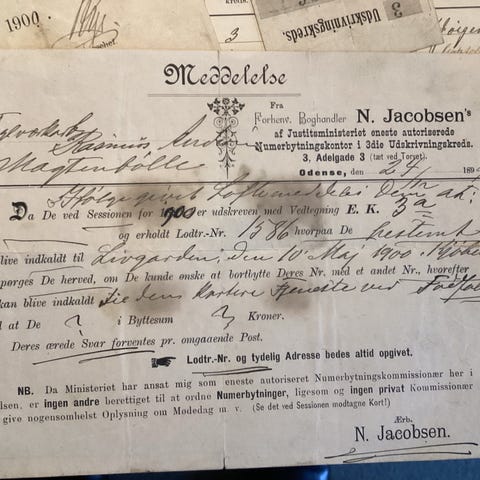 1900.
3
Udskrivningskreds.
3
Meddelelse
Fra
Forhenv. Boghandler N. Jacobsen's
af Justitsministeriet eneste autoriserede
Numerbytningskontor i 3die Udskrivningskreds.
3, Adelgade 3 (tæt ved Torvet).
Odense, den 189
Rasmus
Magtenbölle
Da De ved Sessionen for 1900 er udskreven med Vedtegning E. K.
og erholdt Lodtr.-Nr. 1386 hvorpaa De bestemt
blive indkaldt til Livgarden, den 10 Maj 1900.
spørges De herved, om De kunde ønske at bortbytte Deres Nr. med et andet Nr., hvorefter
kan blive indkaldt Tjeneste ved
d at De ? i Byttesum ? Kroner.
Deres ærede Svar forventes pr. omgaaende Post.
Lodtr.-Nr. og tydelig Adresse bedes altid opgivet.
NB. Da Ministeriet har ansat mig som eneste autoriseret Numerbytningskommissionær her i
elsen, er ingen andre berettiget til at ordne Numerbytninger, ligesom og ingen privat Kommissionær
give nogensomhelst Oplysning om Mødedag m. v. (Se det ved Sessionen modtagne Kort!)
Ærb.
N. Jacobsen.